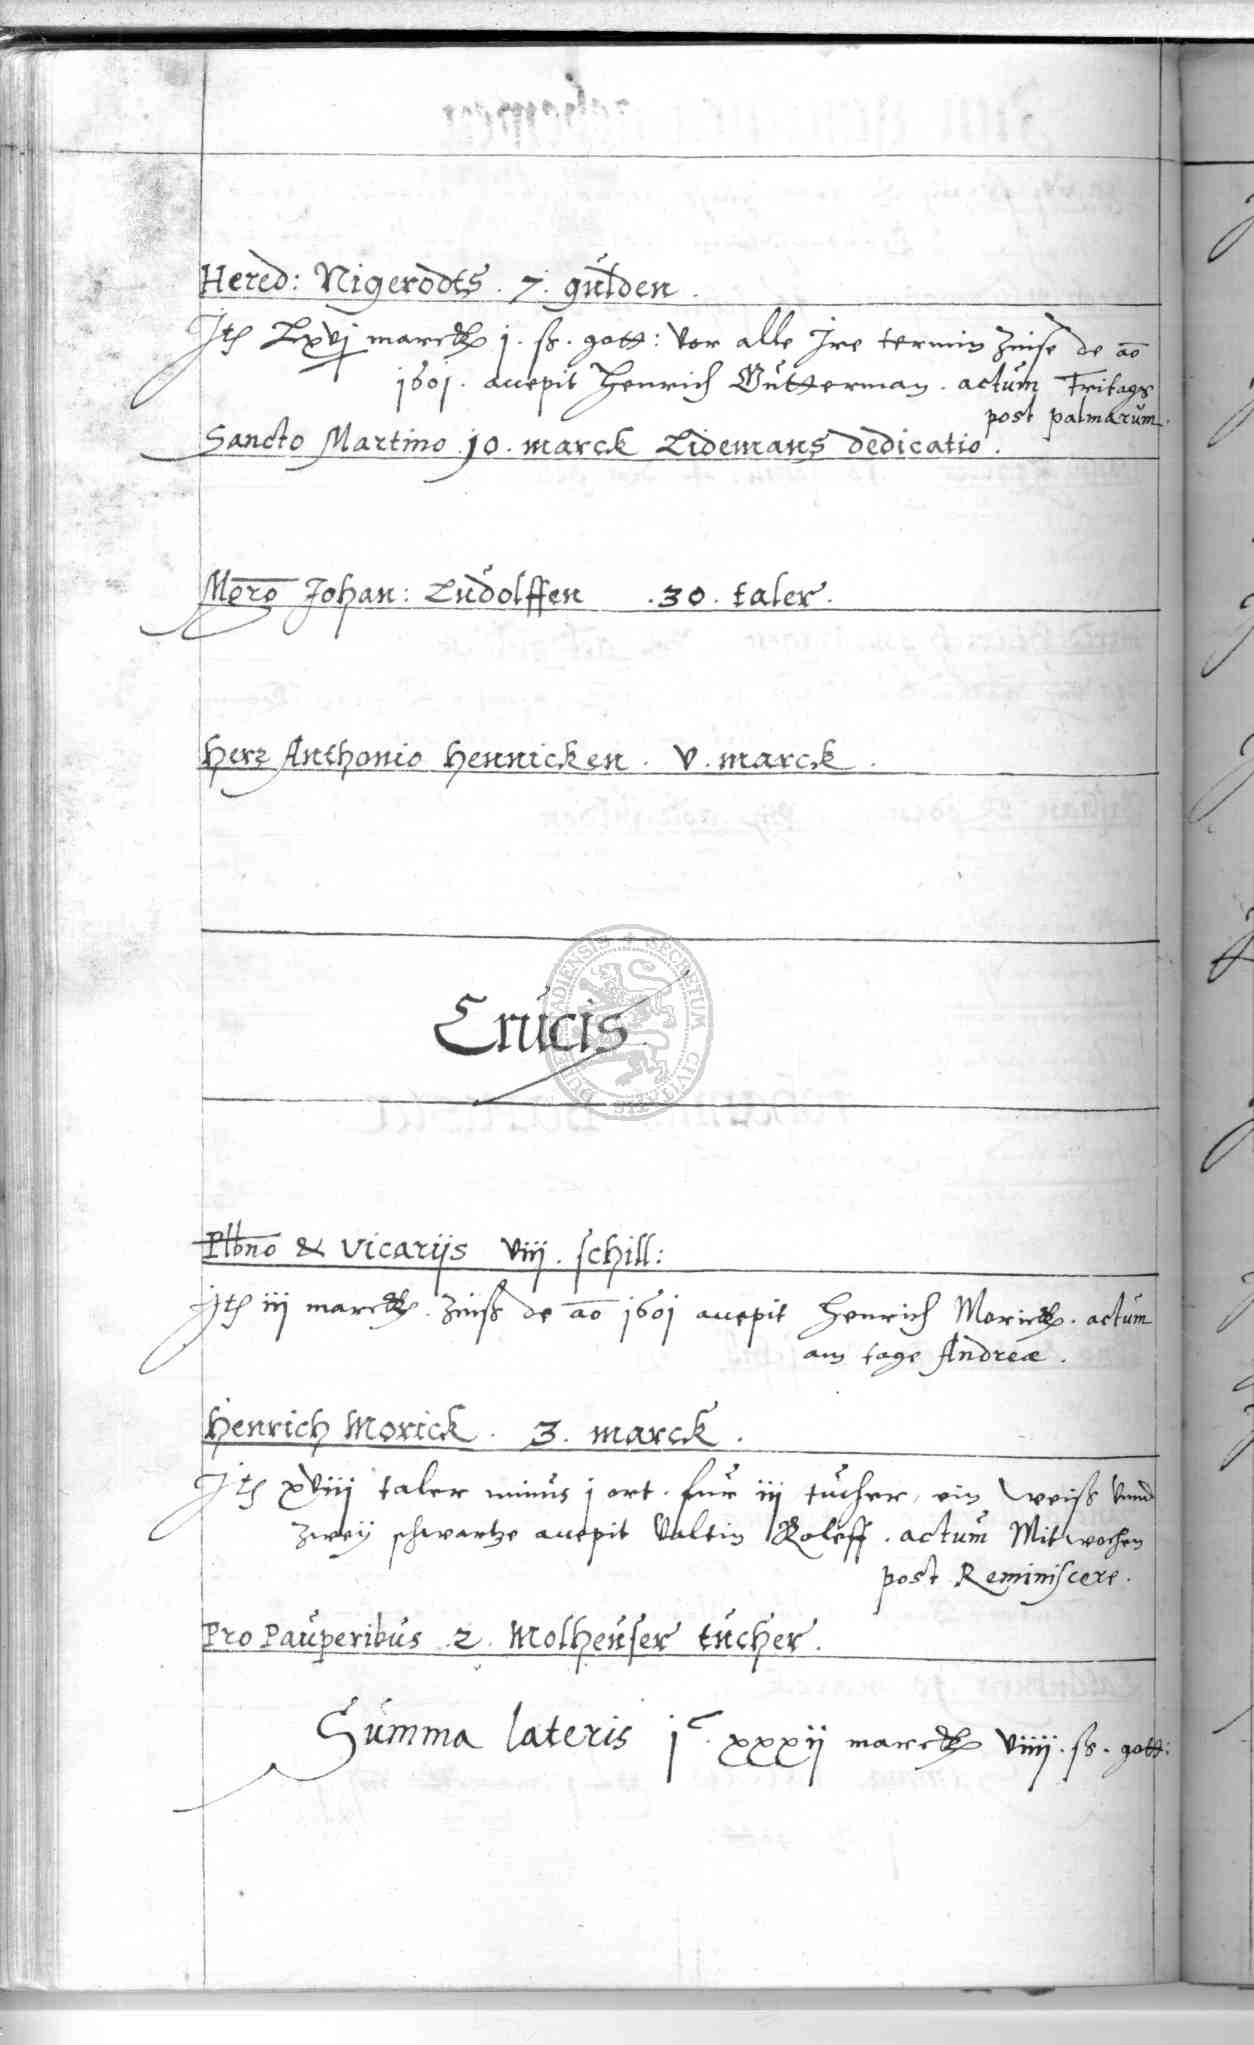 Hered: Nigerodts . 7 . gulden .
Jtem Lxvj marck j . ß . gott: vor alle Jre termin Zinse de ao
1601 . accepit Henrich Gutterman . actum Fritags
post palmarum .
Sancto Martino 10 . marck Lidemans dedicatio .
Mgro Johan: Ludolffen . 30 . taler .
Herr Anthonio Hennicken . v . marck .
Crucis
SECRETUM CIVITATIS DUDERSTADIENSIS
Plbno & vicariis viij . schill:
Jtem iij marck . Zinß de ao 1601 accepit Henrich Morick . actum
am tage Andreæ .
Henrich Morick . 3 . marck .
Jtem xviij taler minus j ort . fur iij tucher, ein weiß vnnd
zwey schwartze accepit Valtin Koleff . actum Mitwochen
post Reminiscere .
Pro Pauperibus . 2 . Molheuser tucher .
Summa lateris jc xxxij marck viiij . ß . gott: